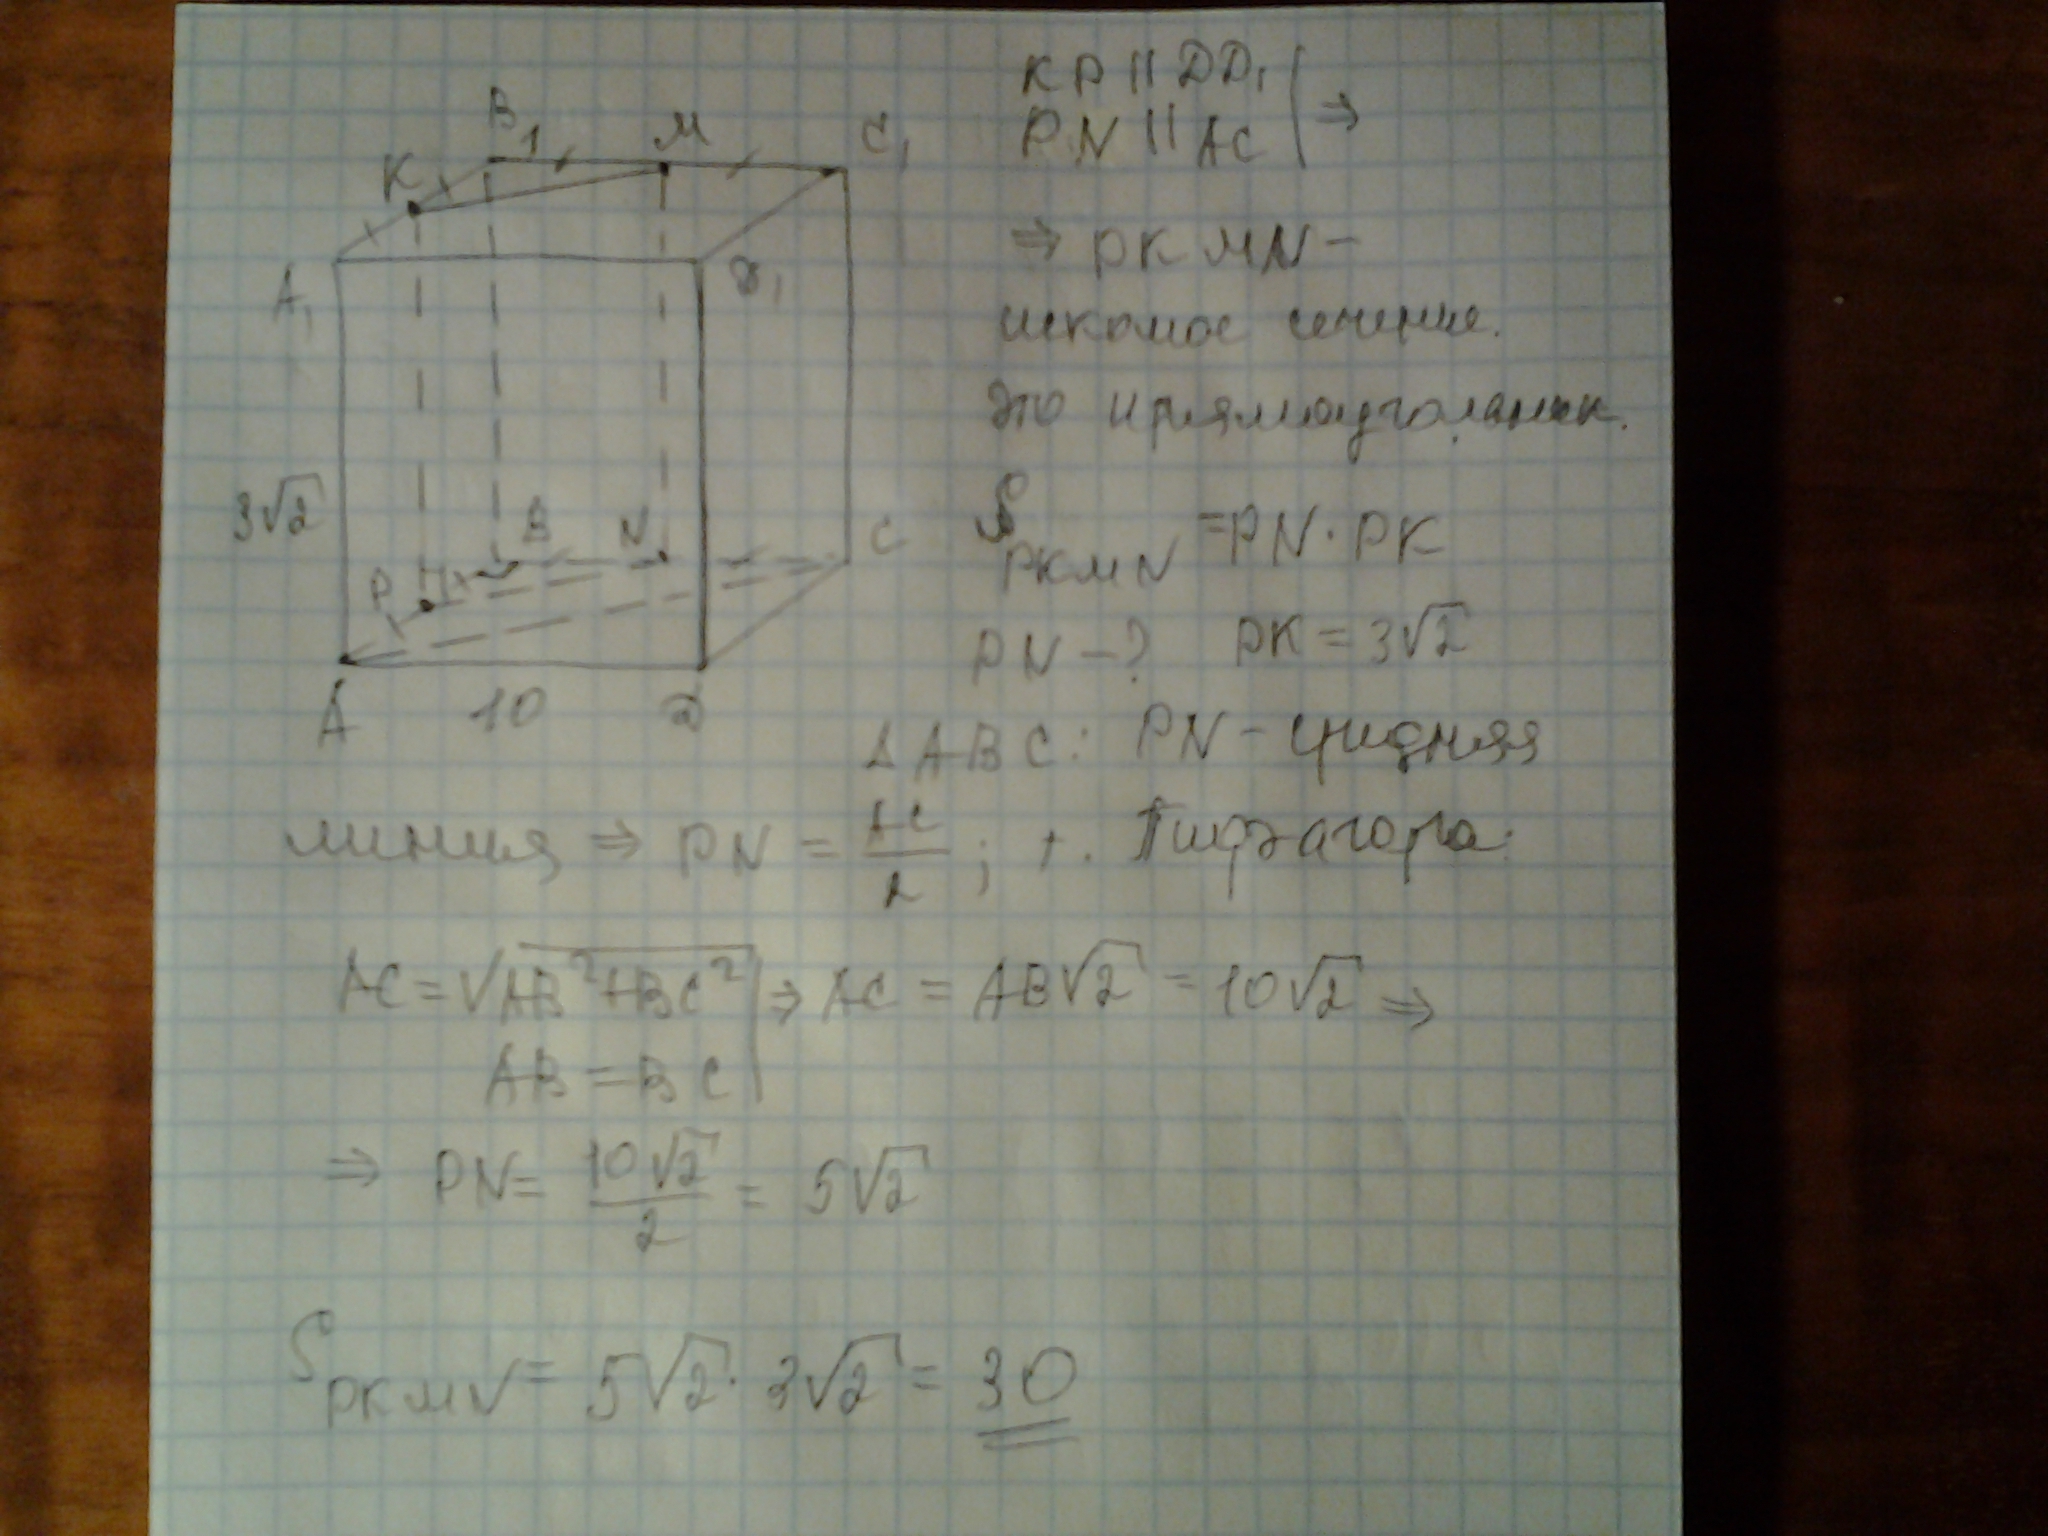 B₁ M C₁
K
A₁ D₁
3√2
B N C
P
A 10 D
KP || DD₁
PN || AC ⇒
⇒ PKMN –
искомое сечение.
это прямоугольник.
S PKMN = PN · PK
PN – ? PK = 3√2
Δ ABC: PN – средняя
линия ⇒ PN = AC/2 ; т. Пифагора:
AC = √AB²+BC² ⇒ AC = AB√2 = 10√2 ⇒
AB = BC
⇒ PN = 10√2/2 = 5√2
S PKMN = 5√2 · 3√2 = 30